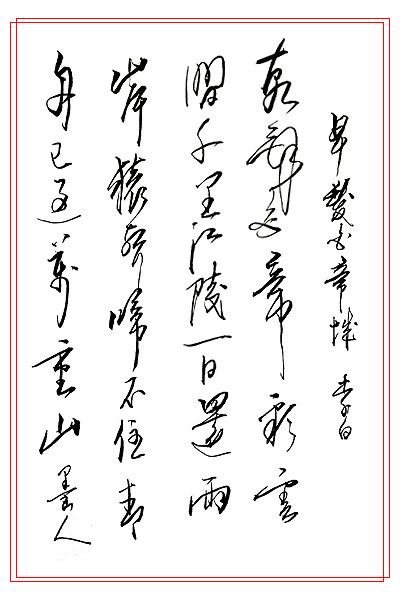 早發白帝城 李白
朝辭白帝彩雲
間千里江陵一日還兩
岸猿聲啼不住輕
舟已過萬重山 墨人